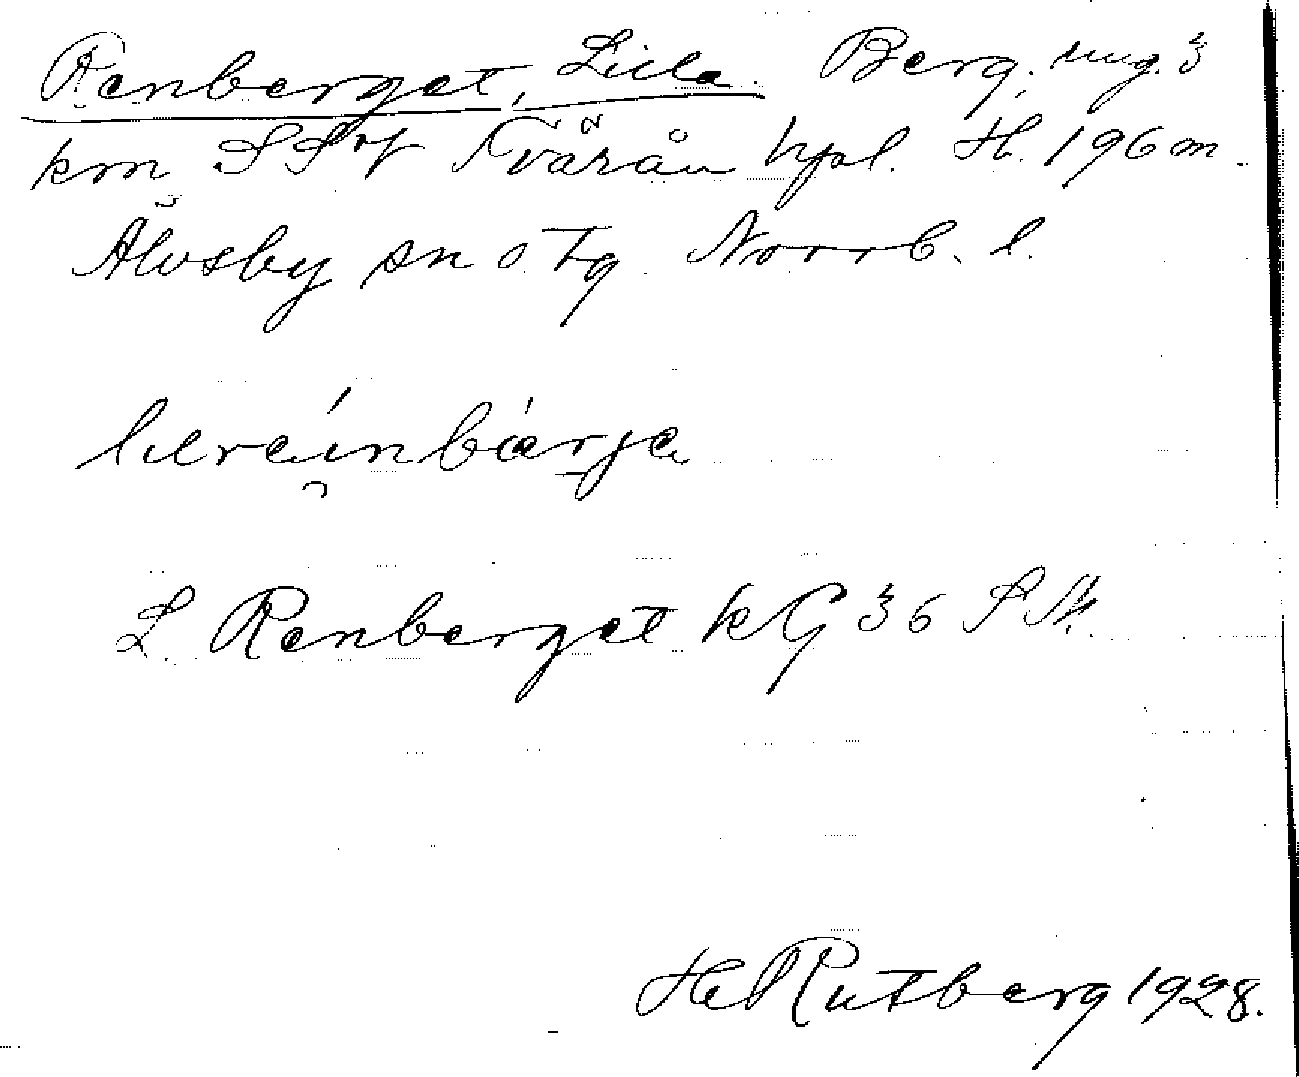 Renberget, Lilla. Berg. ung. 3
km SSV Tvärån hpl. H. 196 m.
Älvsby sn o. tg Norrb. l.
L. Renberget kG 36 SN.
H Rutberg 1928.